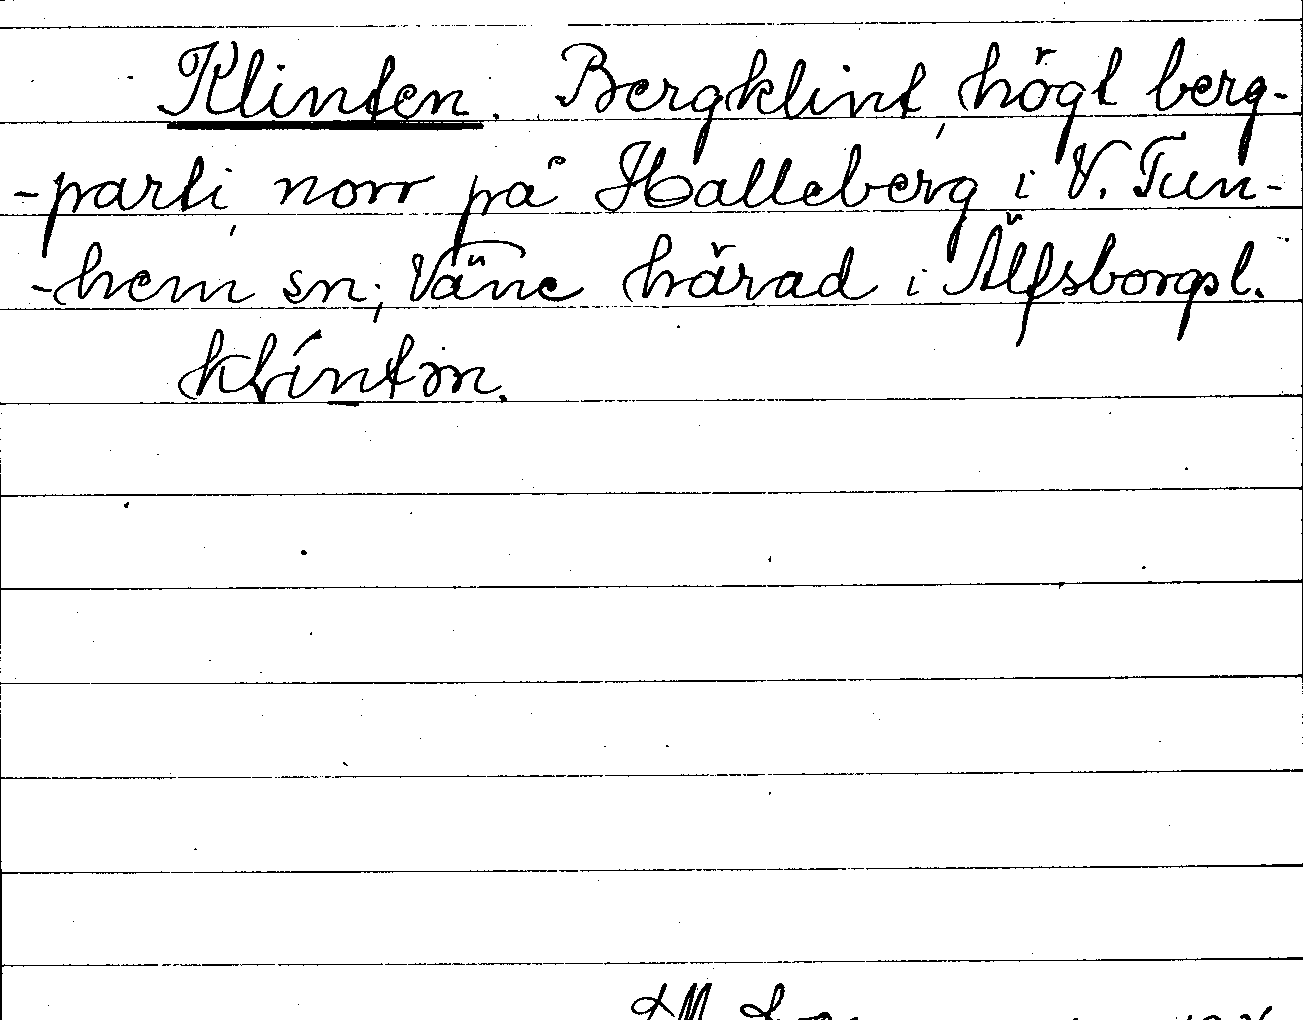 Klinten. Bergklint, högt berg-
-parti norr på Halleberg i V. Tun-
-hem sn; Väne härad i Älfsborgsl.
klintən.